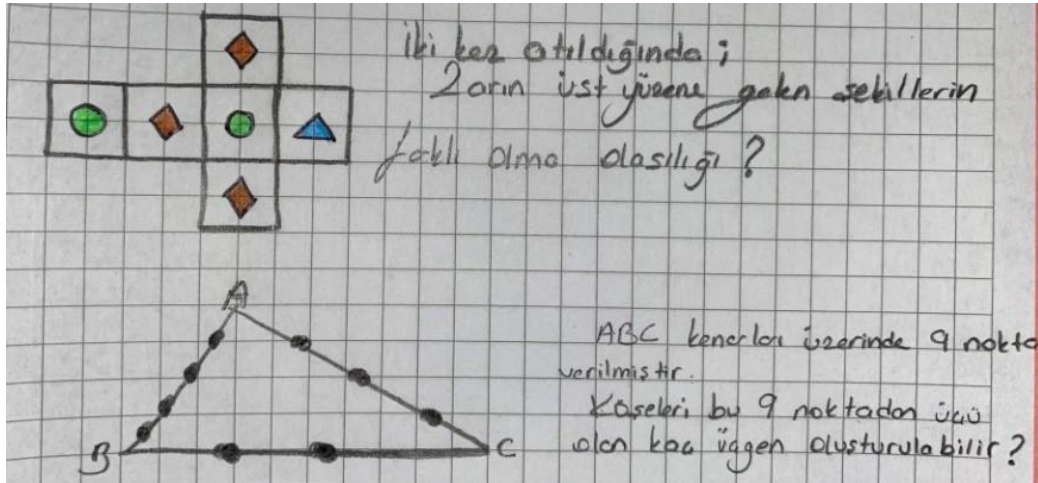 İki kez atıldığında ;
Zarın üst yüzene gelen şekillerin
faklı olma olasılığı ?
A
ABC kenarları üzerinde 9 nokta
verilmiştir.
Köşeleri bu 9 noktadan üçü
B
C
olan kaç üçgen oluşturulabilir ?